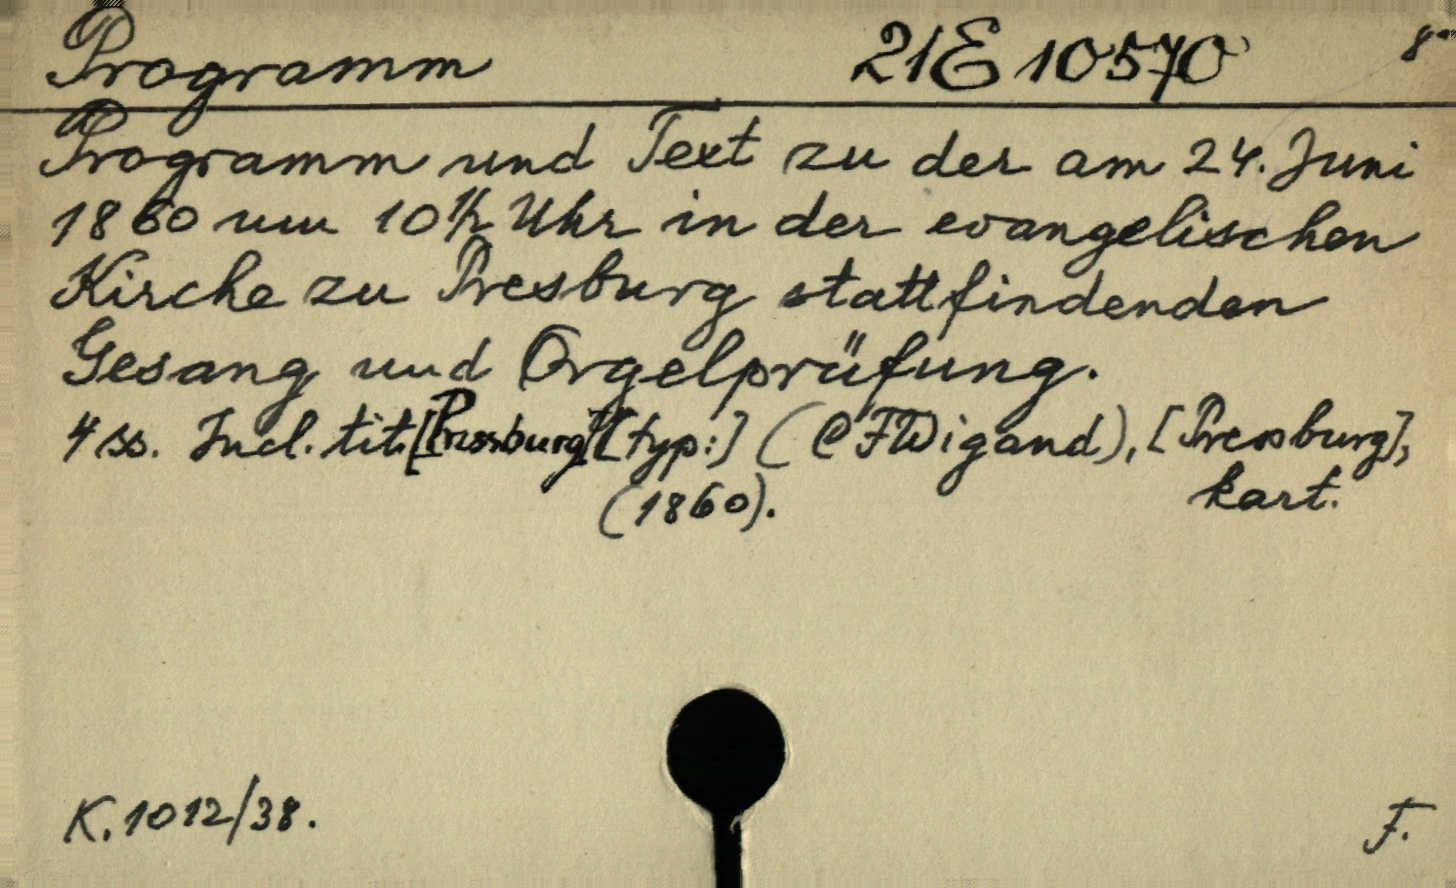 Programm 21E 10570 8°
Programm und Text zu der am 24. Juni
1860 um 10½ Uhr in der evangelischen
Kirche zu Presburg stattfindenden
Gesang und Orgelprüfung.
4 ss. Incl. tit. [Pressburg] [typ:] (CFWigand), [Pressburg],
(1860). kart.
K. 1012/38. F.